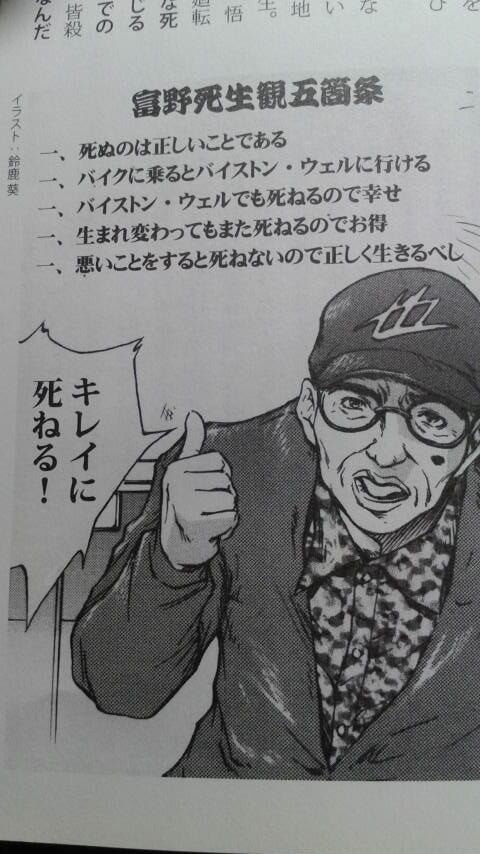 富野死生観五箇条
一、死ぬのは正しいことである
一、バイクに乗るとバイストン・ウェルに行ける
一、バイストン・ウェルでも死ねるので幸せ
一、生まれ変わってもまた死ねるのでお得
一、悪いことをすると死ねないので正しく生きるべし
キレイに
死ねる！
イラスト：鈴鹿 葵
を
び
な
い
地
生。
悟
廻転
な死
じる
での
皆殺
なんだ